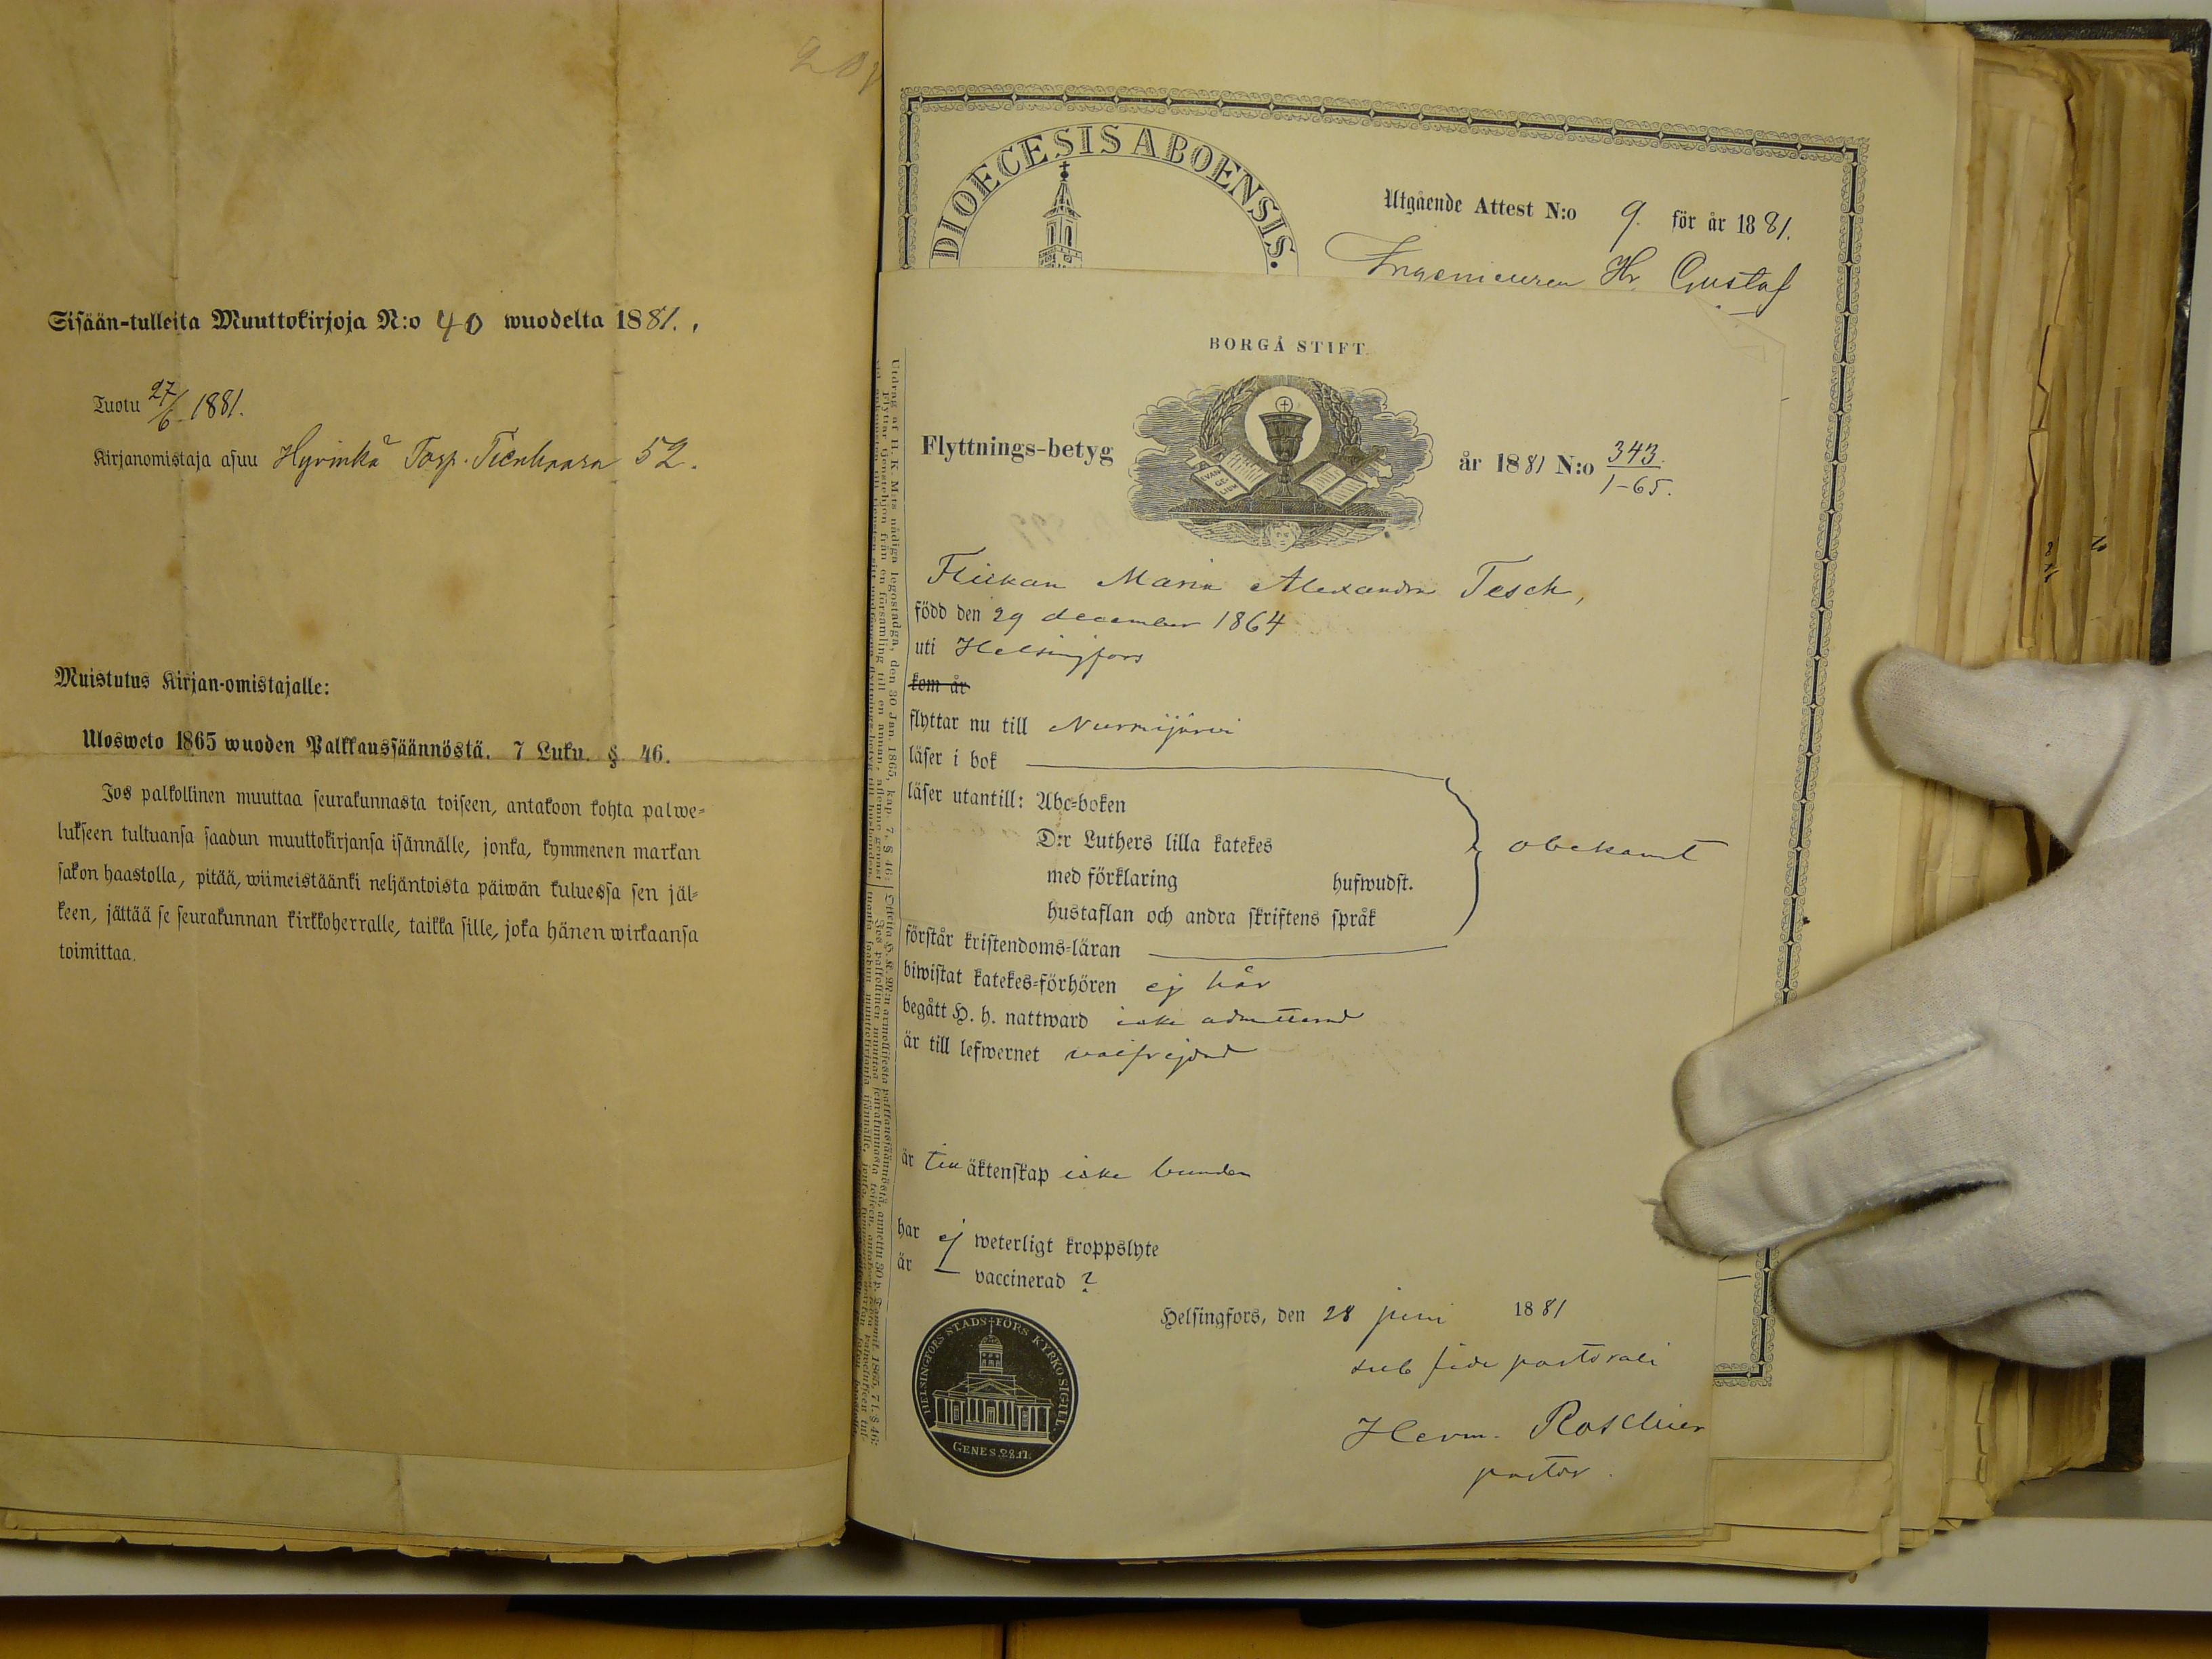 Sisään-tulleita Muuttokirjoja N:o 40 wuodelta 1881.
Tuotu 27/6 1881.
Kirjanomistaja asuu Hyvinkä Torp. Tienhaara 52.
Muistutus Kirjan-omistajalle:
Ulosweto 1865 wuoden Palkkaussäännöstä. 7 Luku. § 46.
Jos palkollinen muuttaa seurakunnasta toiseen, antakoon kohta palwe-
lukseen tultuansa saadun muuttokirjansa isännälle, jonka, kymmenen markan
sakon haastolla, pitää, wiimeistäänki neljäntoista päiwän kuluessa sen jäl-
keen, jättää se seurakunnan kirkkoherralle, taikka sille, joka hänen wirkaansa
toimittaa.
DIOECESIS ABOENSIS.
Utgående Attest N:o 9. för år 1881.
Ingenieuren Hr. Gustaf
BORGÅ STIFT.
Flyttnings-betyg
EVAN
GE
LIUM
år 1881 N:o 343/1-65.
Flickan Maria Alexandra Tesch,
född den 29 december 1864
uti Helsingfors
kom år
flyttar nu till Nurmijärvi
läser i bok
läser utantill: Abc-boken
D:r Luthers lilla katekes
med förklaring hufwudst.
hustaflan och andra skriftens språk
obekant
förstår kristendoms-läran
biwistat katekes-förhören ej här
begått H. H. nattward icke admitterad
är till lefwernet välfrejdad
är till äktenskap icke bunden
har ej weterligt kroppslyte
är vaccinerad ?
Helsingfors, den 28 juni 1881
sub fide pastorali
Herm. Roschier
pastor.
HELSINGFORS STADS-FÖRS KYRKO SIGILL.
GENES. 28.17.